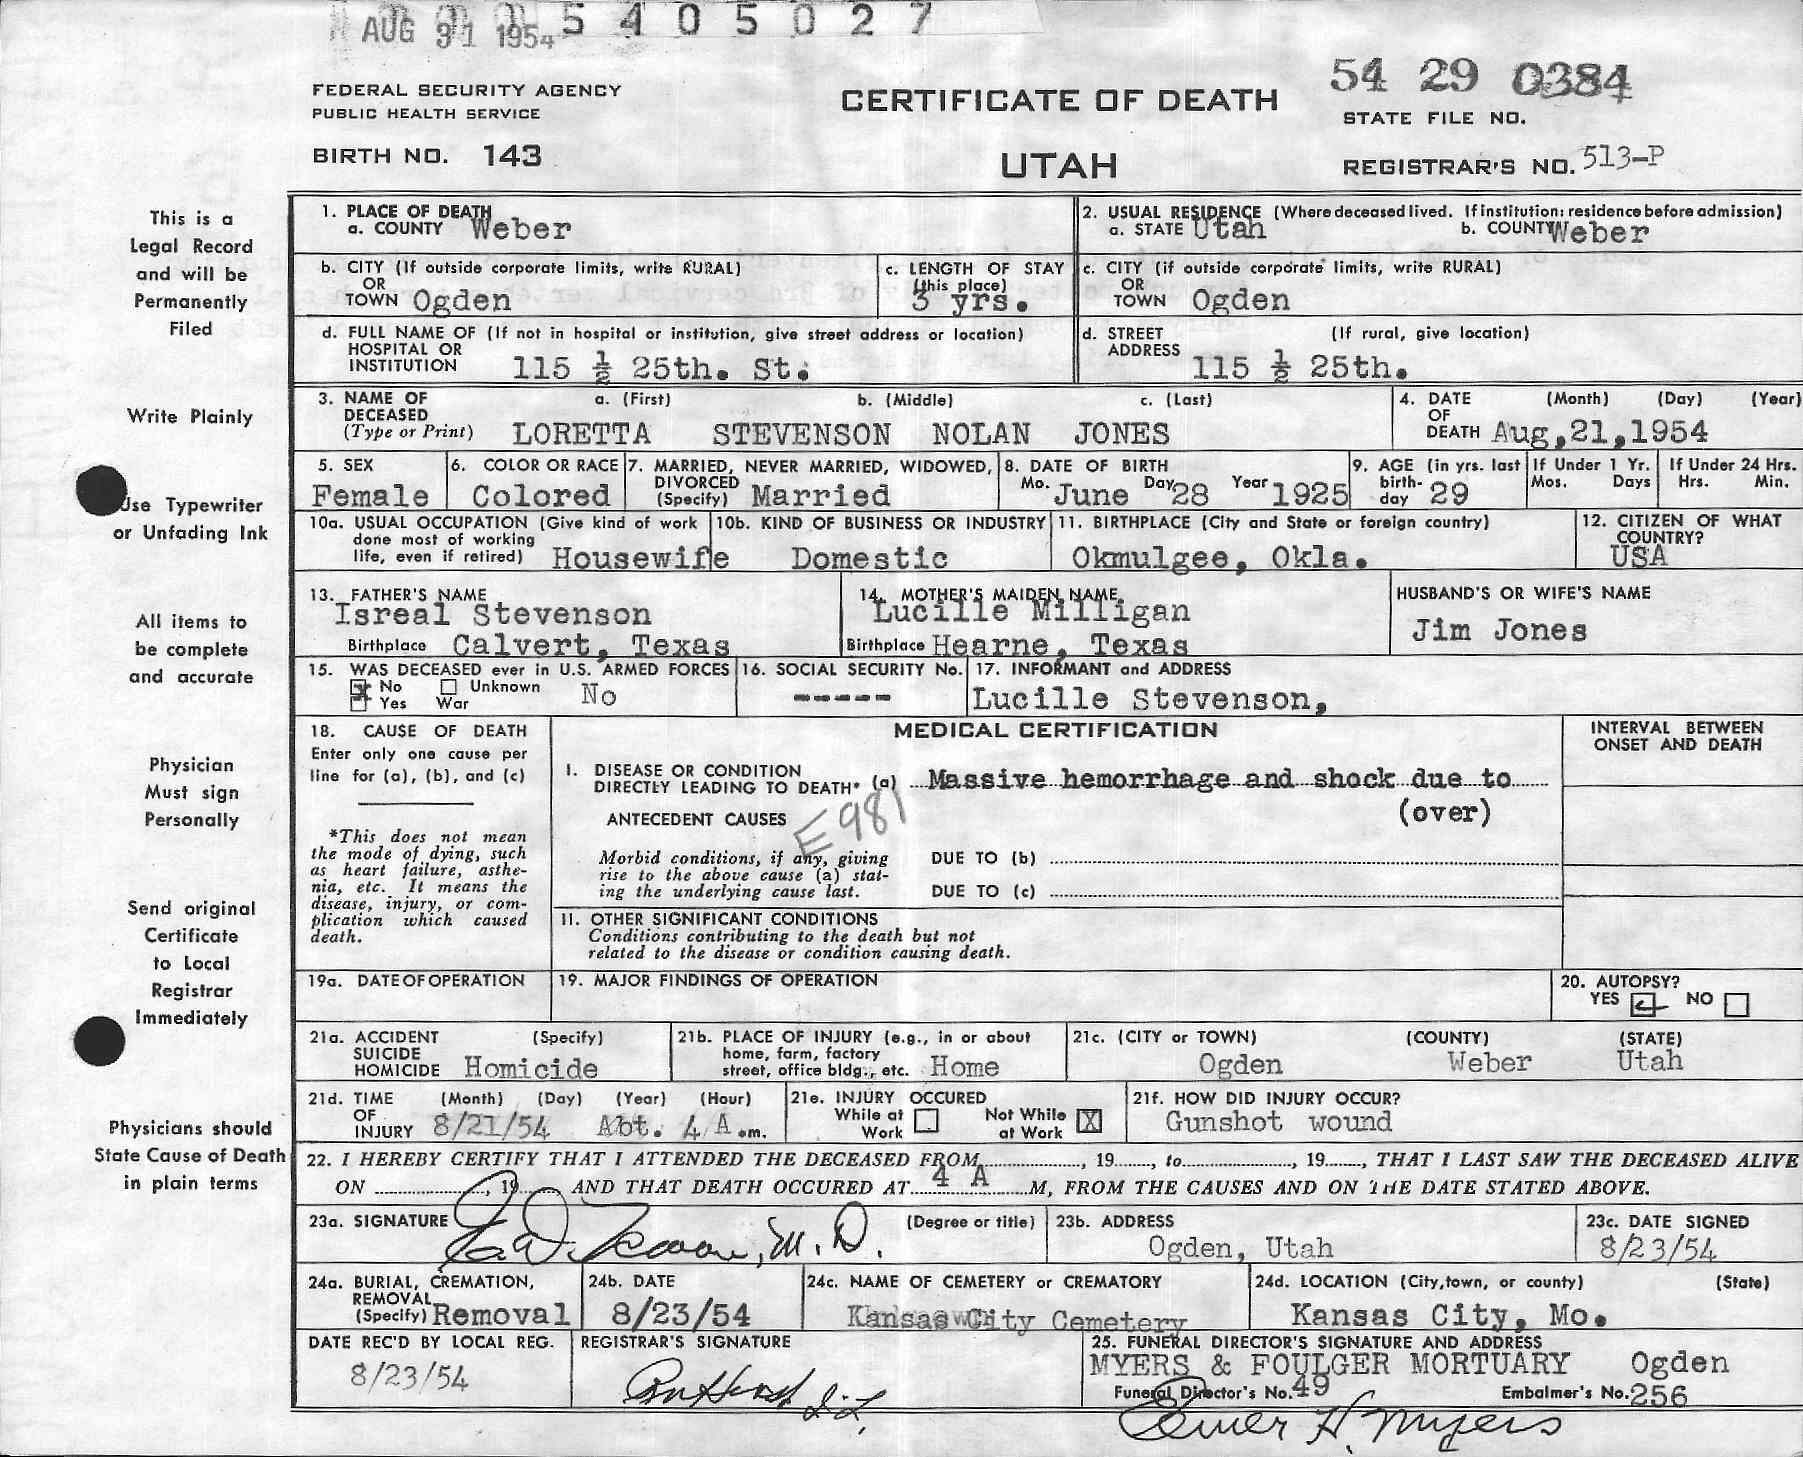 AUG 31 1954 5 4 0 5 0 2 7
54 29 0384
FEDERAL SECURITY AGENCY
PUBLIC HEALTH SERVICE
CERTIFICATE OF DEATH
STATE FILE NO.
BIRTH NO. 143
UTAH
REGISTRAR'S NO. 513-P
This is a
Legal Record
and will be
Permanently
Filed
Write Plainly
Use Typewriter
or Unfading Ink
All items to
be complete
and accurate
Physician
Must sign
Personally
Send original
Certificate
to Local
Registrar
Immediately
Physicians should
State Cause of Death
in plain terms
1. PLACE OF DEATH
a. COUNTY Weber
2. USUAL RESIDENCE (Where deceased lived. If institution: residence before admission)
a. STATE Utah b. COUNTY Weber
b. CITY (If outside corporate limits, write RURAL)
OR
TOWN Ogden
c. LENGTH OF STAY
(this place)
3 yrs.
c. CITY (if outside corporate limits, write RURAL)
OR
TOWN Ogden
d. FULL NAME OF (If not in hospital or institution, give street address or location)
HOSPITAL OR
INSTITUTION 115 ½ 25th. St.
d. STREET (If rural, give location)
ADDRESS 115 ½ 25th.
3. NAME OF a. (First) b. (Middle) c. (Last)
DECEASED
(Type or Print) LORETTA STEVENSON NOLAN JONES
4. DATE (Month) (Day) (Year)
OF
DEATH Aug,21,1954
5. SEX
Female
6. COLOR OR RACE
Colored
7. MARRIED, NEVER MARRIED, WIDOWED,
DIVORCED
(Specify) Married
8. DATE OF BIRTH
Mo. June Day 28 Year 1925
9. AGE (in yrs. last
birth-
day 29
If Under 1 Yr.
Mos. Days
If Under 24 Hrs.
Hrs. Min.
10a. USUAL OCCUPATION (Give kind of work
done most of working
life, even if retired) Housewife
10b. KIND OF BUSINESS OR INDUSTRY
Domestic
11. BIRTHPLACE (City and State or foreign country)
Okmulgee, Okla.
12. CITIZEN OF WHAT
COUNTRY?
USA
13. FATHER'S NAME
Isreal Stevenson
Birthplace Calvert, Texas
14. MOTHER'S MAIDEN NAME
Lucille Milligan
Birthplace Hearne, Texas
HUSBAND'S OR WIFE'S NAME
Jim Jones
15. WAS DECEASED ever in U.S. ARMED FORCES
No Unknown No
Yes War
16. SOCIAL SECURITY No.
-----
17. INFORMANT and ADDRESS
Lucille Stevenson,
18. CAUSE OF DEATH
Enter only one cause per
line for (a), (b), and (c)
*This does not mean
the mode of dying, such
as heart failure, asthe-
nia, etc. It means the
disease, injury, or com-
plication which caused
death.
MEDICAL CERTIFICATION
INTERVAL BETWEEN
ONSET AND DEATH
I. DISEASE OR CONDITION
DIRECTLY LEADING TO DEATH* (a) Massive hemorrhage and shock due to
(over)
ANTECEDENT CAUSES
E981
Morbid conditions, if any, giving
rise to the above cause (a) stat-
ing the underlying cause last.
DUE TO (b)
DUE TO (c)
II. OTHER SIGNIFICANT CONDITIONS
Conditions contributing to the death but not
related to the disease or condition causing death.
19a. DATE OF OPERATION
19. MAJOR FINDINGS OF OPERATION
20. AUTOPSY?
YES NO
21a. ACCIDENT (Specify)
SUICIDE
HOMICIDE Homicide
21b. PLACE OF INJURY (e.g., in or about
home, farm, factory
street, office bldg., etc. Home
21c. (CITY or TOWN) (COUNTY) (STATE)
Ogden Weber Utah
21d. TIME (Month) (Day) (Year) (Hour)
OF
INJURY 8/21/54 Abt. 4 A.m.
21e. INJURY OCCURED
While at Work Not While at Work X
21f. HOW DID INJURY OCCUR?
Gunshot wound
22. I HEREBY CERTIFY THAT I ATTENDED THE DECEASED FROM, 19, to, 19, THAT I LAST SAW THE DECEASED ALIVE
ON, 19 AND THAT DEATH OCCURED AT 4 A M, FROM THE CAUSES AND ON THE DATE STATED ABOVE.
23a. SIGNATURE M.D. (Degree or title)
23b. ADDRESS
Ogden, Utah
23c. DATE SIGNED
8/23/54
24a. BURIAL, CREMATION,
REMOVAL
(Specify) Removal
24b. DATE
8/23/54
24c. NAME OF CEMETERY or CREMATORY
Kansas City Cemetery
24d. LOCATION (City, town, or county) (State)
Kansas City, Mo.
DATE REC'D BY LOCAL REG.
8/23/54
REGISTRAR'S SIGNATURE
25. FUNERAL DIRECTOR'S SIGNATURE AND ADDRESS
MYERS & FOULGER MORTUARY Ogden
Funeral Director's No. 49 Embalmer's No. 256
Elmer H. Myers